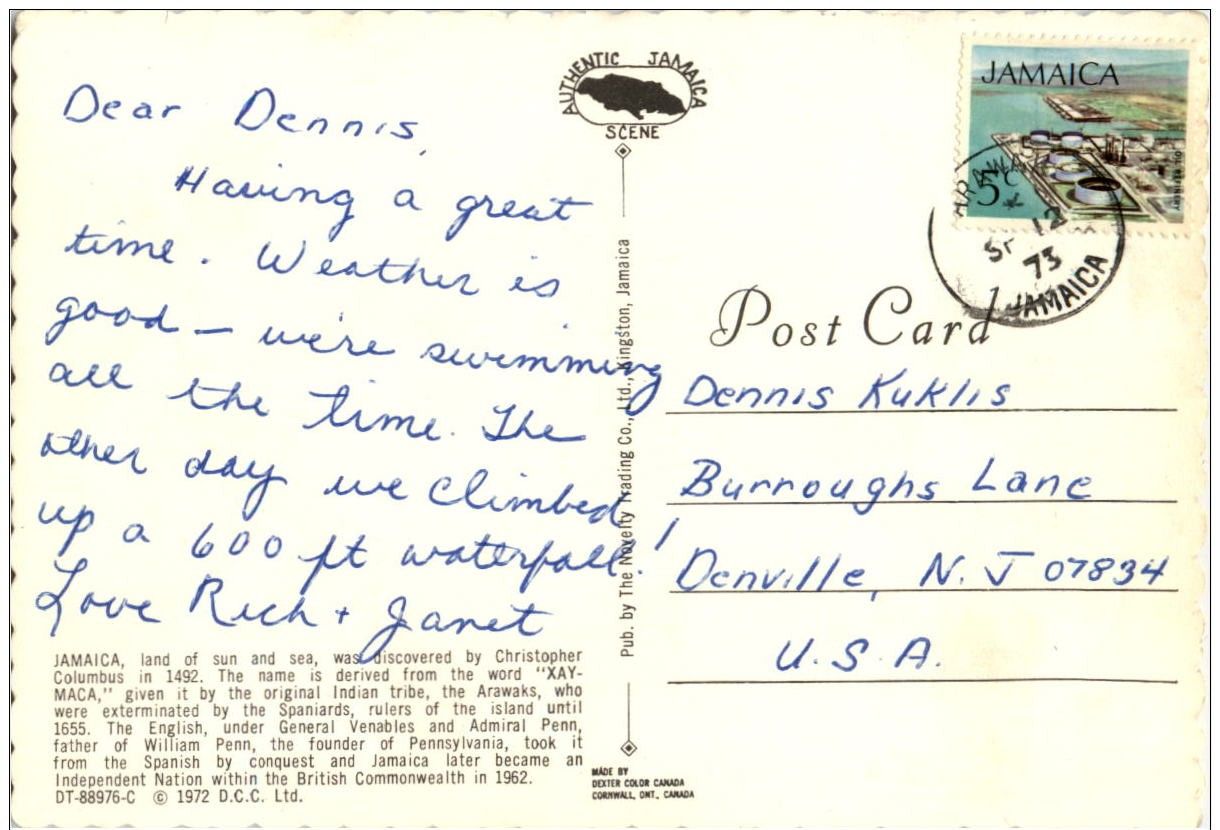 Dear Dennis,
Having a great
time. Weather is
good – we're swimming
all the time. The
other day we climbed
up a 600 ft waterfall!
Love Rich + Janet
JAMAICA, land of sun and sea, was discovered by Christopher
Columbus in 1492. The name is derived from the word "XAY-
MACA," given it by the original Indian tribe, the Arawaks, who
were exterminated by the Spaniards, rulers of the island until
1655. The English, under General Venables and Admiral Penn,
father of William Penn, the founder of Pennsylvania, took it
from the Spanish by conquest and Jamaica later became an
Independent Nation within the British Commonwealth in 1962.
DT-88976-C © 1972 D.C.C. Ltd.
AUTHENTIC JAMAICA
SCENE
Pub. by The Novelty Trading Co., Ltd., Kingston, Jamaica
MADE BY
DEXTER COLOR CANADA
CORNWALL, ONT., CANADA
JAMAICA
5c
OIL REFINERY
12
73
1 JAMAICA
Post Card
Dennis Kuklis
Burroughs Lane
Denville, N.J 07834
U.S.A.